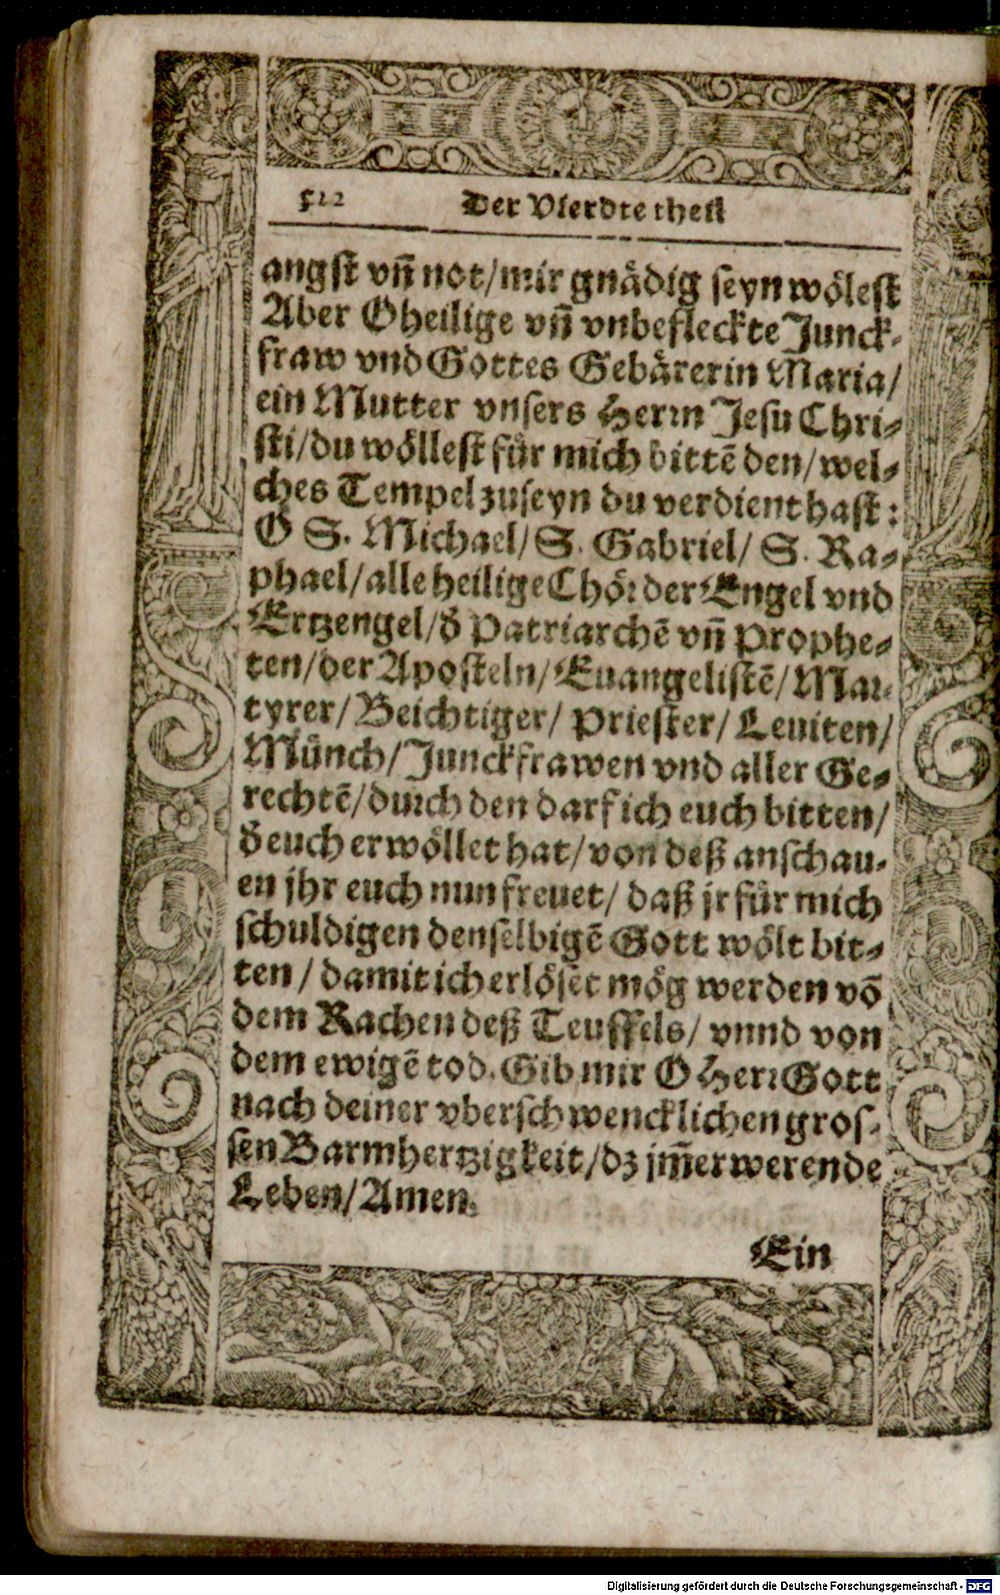 512 Der Vierdte theil
angst vñ not/mir gnädig seyn wölest
Aber O heilige vñ vnbefleckte Junck-
fraw vnd Gottes Gebärerin Maria/
ein Mutter vnsers Herrn Jesu Chri-
sti/du wöllest für mich bittē den/wel-
ches Tempel zuseyn du verdient hast:
O S. Michael/ S. Gabriel/ S. Ra-
phael/alle heilige Chör der Engel vnd
Ertzengel/d̕ Patriarchē vñ Prophe-
ten/der Aposteln/Euangelistē/Mar-
tyrer/Beichtiger/ Priester/ Leuiten/
Münch/Junckfrawen vnd aller Ge-
rechtē/durch den darf ich euch bitten/
d̕ euch erwöllet hat/von deß anschau-
en jhr euch nun frewet/ daß jr für mich
schuldigen denselbigē Gott wölt bit-
ten/ damit ich erlöset mög werden vō
dem Rachen deß Teuffels/ vnnd von
dem ewigē tod. Gib mir O Herr Gott
nach deiner vberschwencklichen gros-
sen Barmhertzigkeit/dz jm̄er werende
Leben/Amen.
Ein
Digitalisierung gefördert durch die Deutsche Forschungsgemeinschaft - DFG